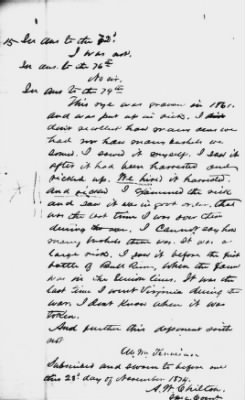 15 In ans to the 72d.
I was not.
In ans to the 76th
No sir.
In ans to the 79th
This rye was grown in 1861.
and was put up in rick. I
don't recollect how many acres we
had nor how many bushels we
sowed. I sowed it myself. I saw it
after it had been harvested and
ricked up. We hired it harvested.
and ricked I examined the rick
and saw it was in good order. that
was the last time I was over there
during the war. I cannot say how
many bushels there was. It was a
large rick. I saw it before the first
battle of Bull Run, when the farm
was in the Union lines. It was the
last time I went Virginia during the
war. I dont know when it was
taken.
And further this deponent saith
not
Wm
Subscribed and sworn to before me
this 23d day of November 1874.
A. W. Chilton